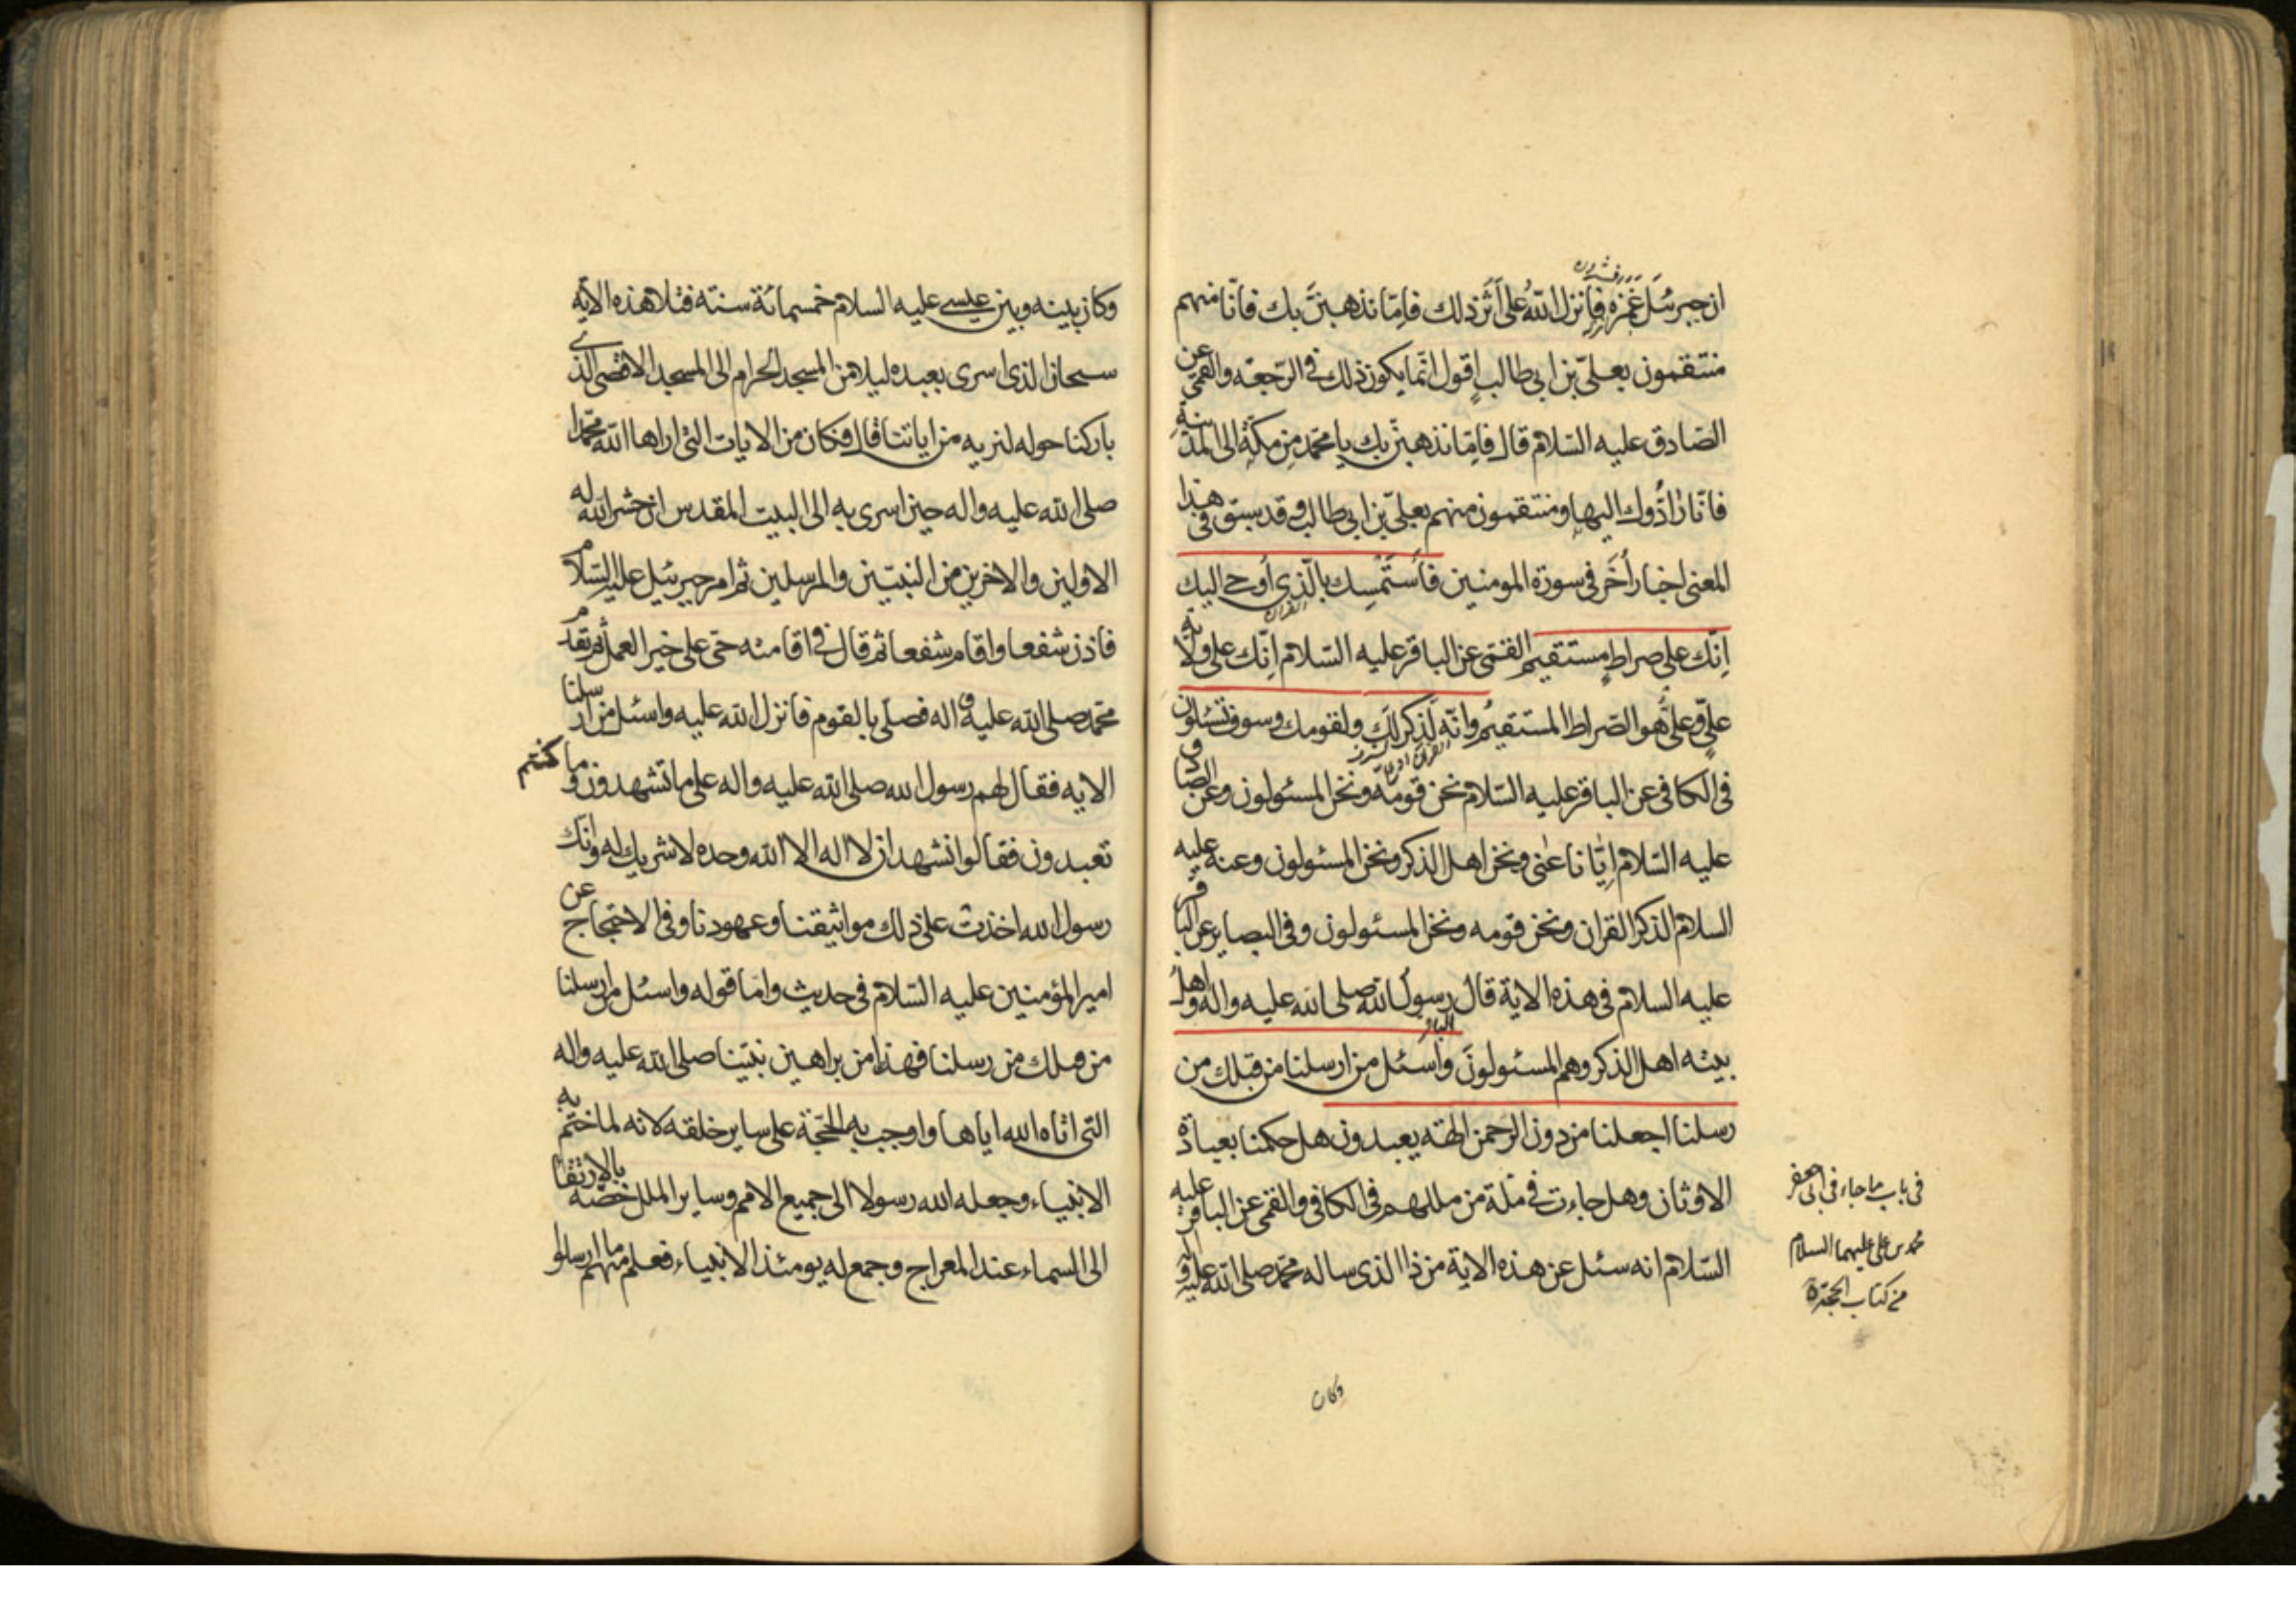 ان جبرئيل غمزه فانزل الله على اثر ذلك فاِمّا نذهبنّ بك فانّا منهم
منتقمون بعلىّ بن ابى طالب اقول انّما يكون ذلك فى الرّجعه والقمى عن
الصّادق عليه السّلام قال فاِمّا نذهبنّ بك يا محمّد من مكّة الى المدينةِ
فانّا رادّوك اليها ومنتقمون منهم بعلىّ بن ابى طالب وقد سبق فى هذا
المعنى اخبار اُخَر فى سورة المومنين فاَستَمْسِك بالّذى اُوحى اليك
اِنّك على صراطٍ مستقيمٍ القمّى عن الباقر عليه السّلام اِنّك على ولاية
علىٍّ وعلىٌّ هو الصّراط المستقيمُ وانّه لَذِكر لكَ ولقومك وسوف تسئلون
فى الكافى عن الباقر عليه السّلام نحن قومه ونحن المسئولون وعن الصّادق
عليه السّلام اِيّانا عنى ونحن اهل الذكر ونحن المسئولون وعنه عليه
السلام الذكر القران ونحن قومه ونحن المسئولون وفى البصاير عن الباقر
عليه السلام فى هذه الاية قال رسول الله صلى الله عليه واله واهل
بيته اهل الذكر وهم المسئولونَ واسئل من ارسلنا من قبلك من
رسلنا اجعلنا من دون الرحمن الهته يعبدون هل حكمنا بعبادة
الاوثان وهل جاءت فى ملّة من مللهم فى الكافى والقمى عن الباقر عليه
السّلام انه سئل عن هذه الاية من ذا الذى ساله محمّد صلى الله عليه و اله
فى باب ما جاء فى ابى جعفر
محمد بن على عليهما السلام
من كتاب الحجّة
وكان
وكان بينه وبين عيسى عليه السلام خمسمائة سنته فتلا هذه الآية
سبحان الذى اسرى بعبده ليلا من المسجد الحرام الى المسجد الاقصى الذى
باركنا حوله لنريه من اياتنا قال فكان من الايات التى اراها الله محمّدا
صلى الله عليه واله حين اسرى به الى البيت المقدس ان حشر الله له
الاولين والاخرين من النبيّين والمرسلين ثم امر جبرئيل عليه السّلام
فاذن شفعا واقام شفعا ثم قال فى اقامته حىّ على خير العمل ثم تقدم
محمّد صلى الله عليه و اله فصلّى بالقوم فانزل الله عليه واسئل من ارسلنا
الايه فقال لهم رسول الله صلى الله عليه واله على ما تشهدون وما كنتم
تعبدون فقالوا نشهد ان لا اله الا الله وحده لا شريك له وانك
رسول الله اخذت على ذلك مواثيقنا وعهودنا وفى الاحتجاج عن
امير المؤمنين عليه السّلام فى حديث وامّا قوله واسئل من ارسلنا
من قبلك من رسلنا فهذا من براهين نبيّنا صلى الله عليه واله
التى اتاه الله اياها واوجب به الحجّة على ساير خلقه لانه لما ختم به
الانبياء وجعله الله رسولا الى جميع الامم وساير الملل خصّه بالارتقا
الى السماء عند المعراج وجمع له يومئذ الانبياء فعلم منهم ما ارسلوا